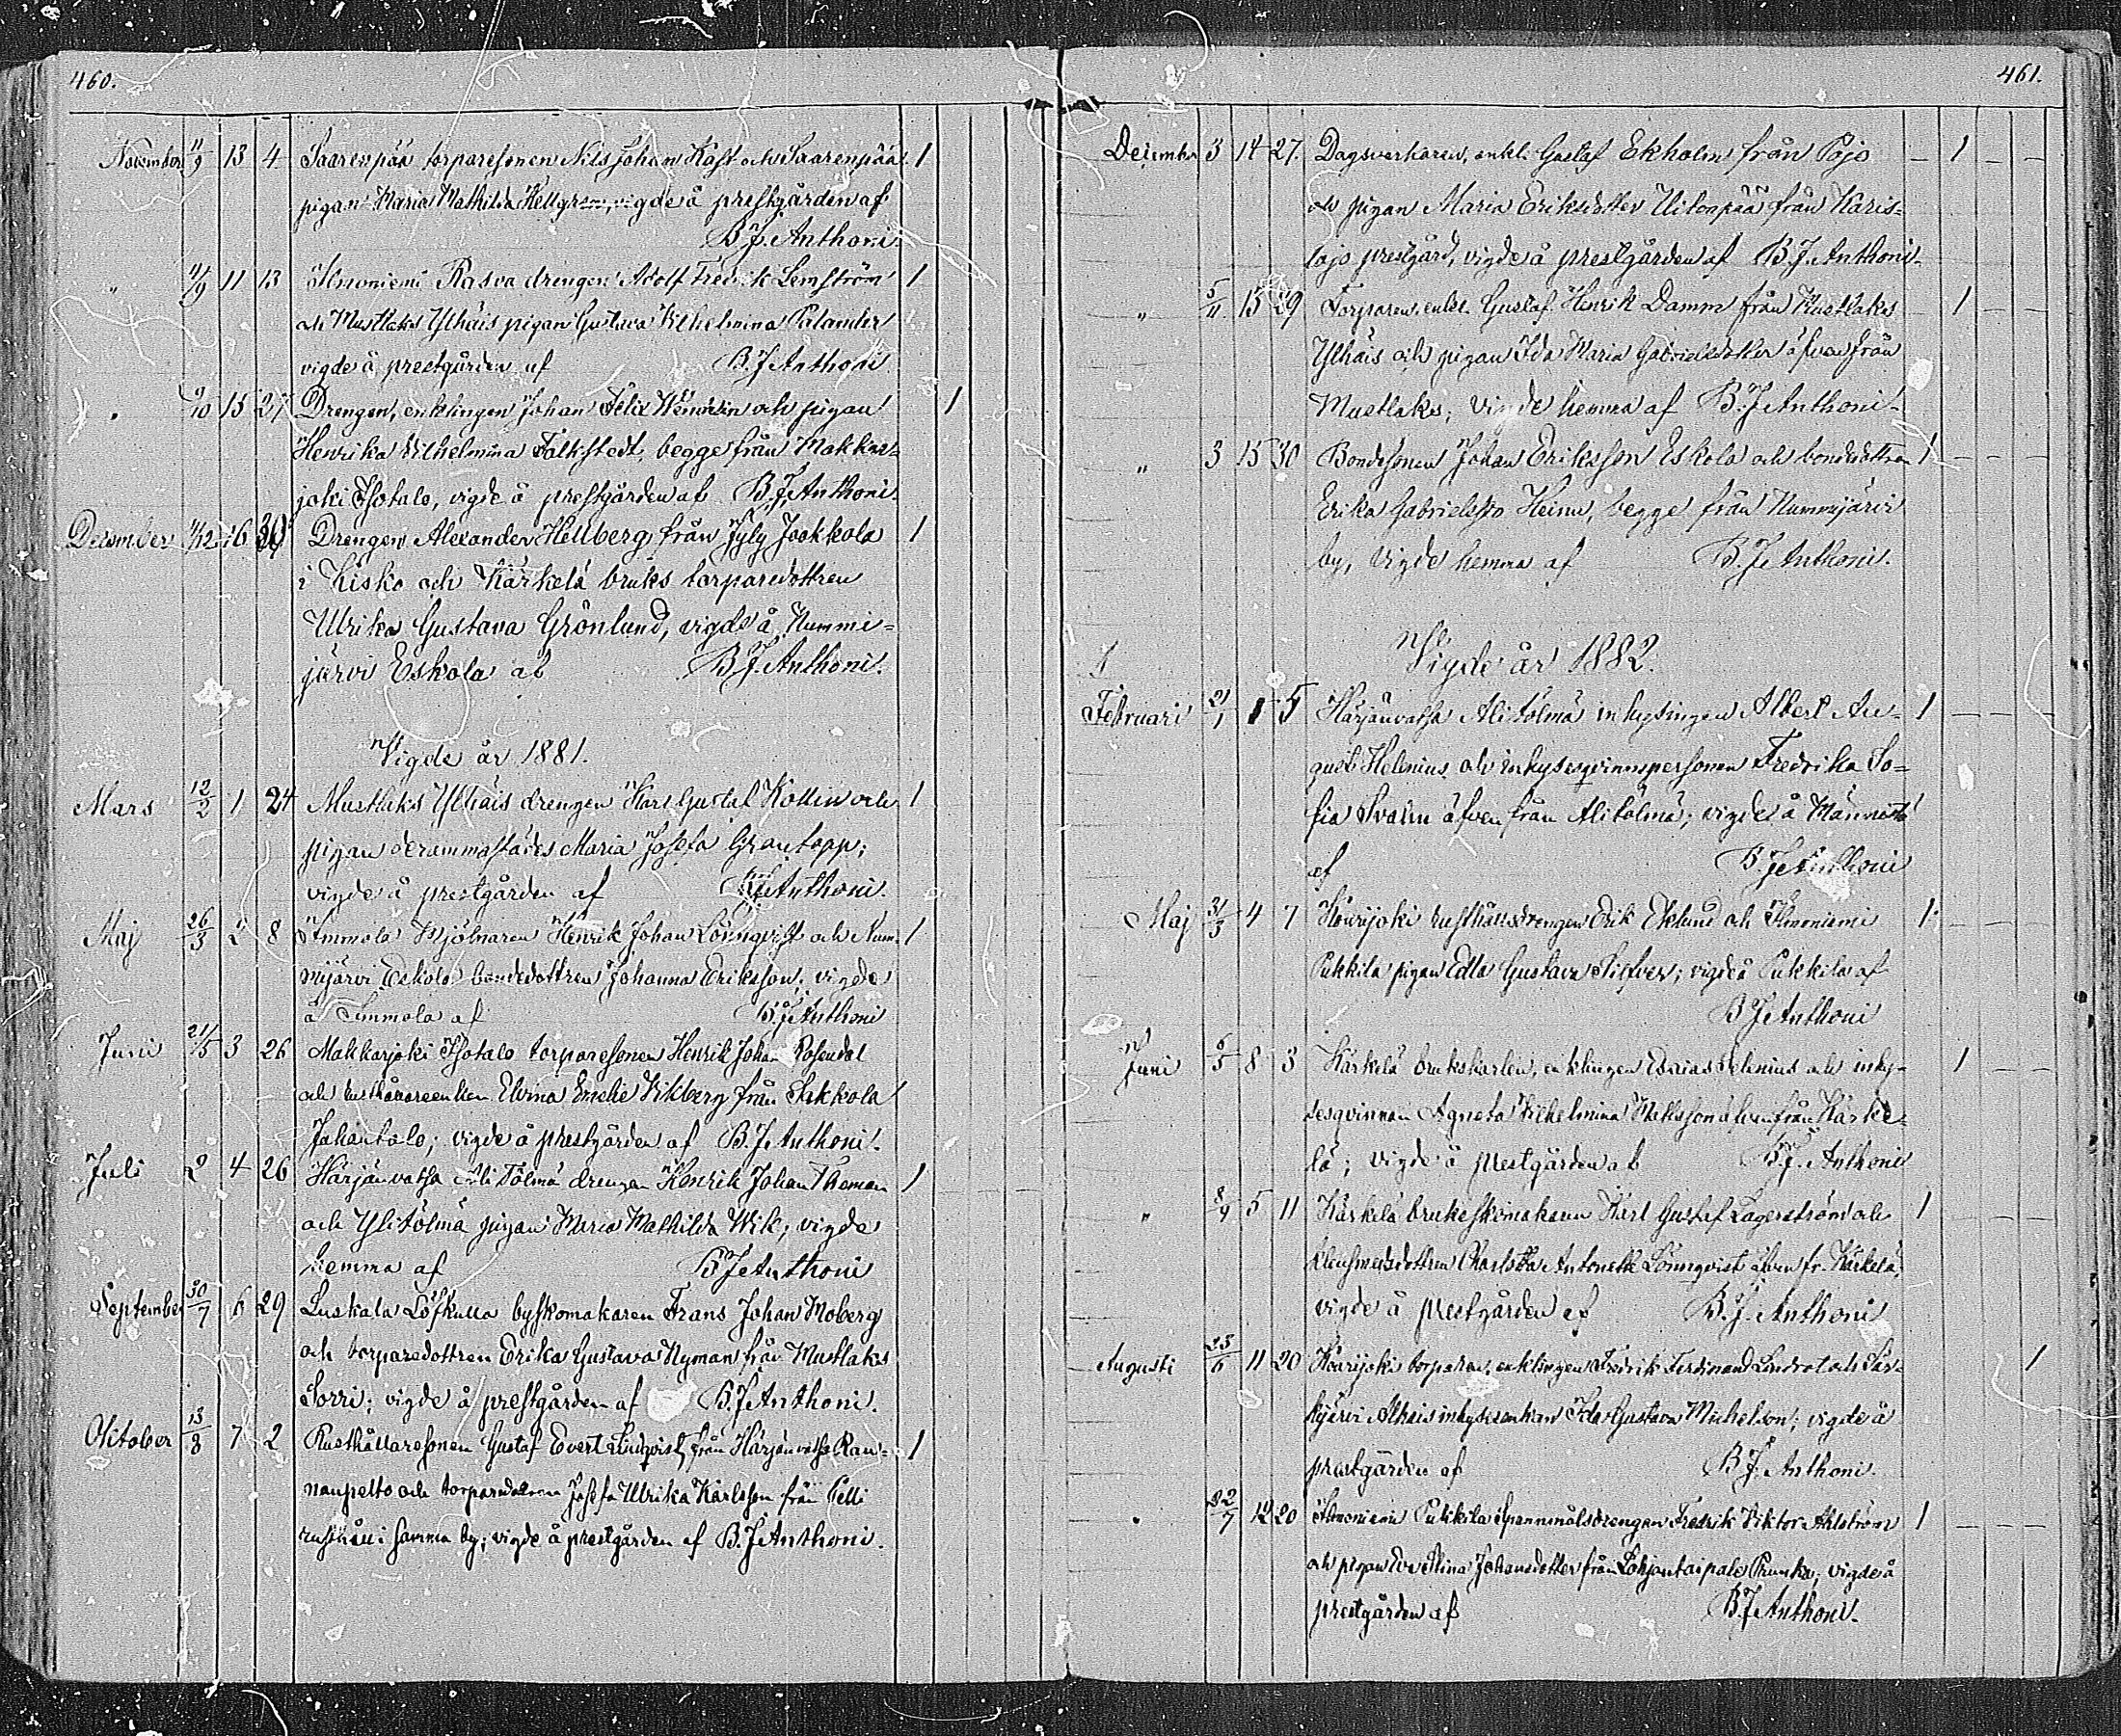 460.
November 11/9 13 4 Saarenpää torparesonen Nils Johan Kast och Saarenpää 1
pigan Maria Mathilda Hellgren, vigde å prestgården af
B.J. Anthoni.
" 11/9 11 13 Ilmoniemi Rasva drengen Adolf Fredrik Lemström 1
och Mustlaks Ylhäis pigan Gustava Vilhelmina Palander
vigde å prestgården af B.J. Anthoni.
" 9/10 15 27 Drengen, enklingen Johan Felix och pigan 1
Henrika Vilhelmina Falkstedt, begge från Makkar-
joki Isotalo, vigde å prestgården af B.J. Anthoni.
December 11/12 16 30 Drengen Alexander Hellberg från Jyly Jookkola 1
i Kisko och Kärkelä bruks torparedottren
Ulrika Gustava Grönlund, vigde å Nummi-
järvi Eskola af B.J. Anthoni.
Vigde år 1881.
Mars 12/2 1 24 Mustlaks Ylhäis drengen Karl Gustaf Kollin och 1
pigan derammastädes Maria Josefa Grantopp;
vigde å prestgården af B.J. Anthoni.
Maj 26/3 2 8 Immola Mjölnaren Henrik Johan Lönnqvist och Num- 1
mijärvi Eskola bondedottren Johanna Eriksson; vigde
å Immola af B.J. Anthoni
Juni 21/5 3 26 Makkarjoki Isotalo torparesonen Henrik Johan Rosendal
och Elvina Emelie Vikberg från Sakkola 1
Juhantalo; vigde å prestgården af B.J. Anthoni.
Juli 2 4 26 Härjänvatsa Ali Tölmä drengen Henrik Johan Theman 1
och Ylitölmä pigan Maria Mathilda Wik; vigde
hemma af B.J. Anthoni
September 30/7 6 29 Luskala Löfkulla byskomakaren Frans Johan Moberg
och torparedottren Erika Gustava Nyman från Mustlaks
Sorri; vigde å prestgården af B.J. Anthoni.
October 13/8 7 2 Rusthållaresonen Gustaf Evert Lindqvist från Härjänvatsa Ran- 1
nanpelto och torparedottren Josefa Ulrika Karlsson från Pelli
rusthåll i samma by; vigde å prestgården af B.J. Anthoni.
461.
December 3 14 27. Dagsverkaren, enkl. Gustaf Ekholm från Pojo 1
och pigan Maria Eriksdotter från Karis-
lojo prestgård, vigde å prestgården af B.J. Anthoni.
" 5/11 15 29 Torparen, enkl. Gustaf Henrik Damm från Mustlaks 1
Ylhäis och pigan Ida Maria Gabrielsdotter äfven från
Mustlaks; vigde hemma af B.J. Anthoni.
" 3 15 30 Bondesonen Johan Eriksson Eskola och bondedottren 1
Erika Gabrielsson Heinu, begge från Nummijärvi
by, vigde hemma af B.J. Anthoni.
Vigde år 1882.
Februari 21/1 1 5 Härjänvatsa Alitölmä inhysingen Albert Au- 1
gust Helenius och inhysesqvinnspersonen Fredrika So-
fia Svahn äfven från Alitölmä; vigde å Männistö
af B.J. Anthoni
Maj 31/3 4 7 rusthållsdrengen Erik Eklund och Ilmoniemi 1
Pukkila pigan Edla Gustava Silfver; vigde å Pukkila af
B.J. Anthoni
Juni 6/5 8 3 Kärkelä brukskarlen, enklingen Esaias Selenius och inhy- 1
sesqvinnan Agneta Vilhelmina Mattsson äfven från Kärke-
lä; vigde å prestgården af B.J. Anthoni
" 8/4 5 11 Kärkelä bruksskomakaren Karl Gustaf Lagerström och 1
klensmedsdottren Charlotta Antonette Lönnqvist äfven fr. Kärkelä;
vigde å prestgården af B.J. Anthoni
Augusti 23/6 11 20 torparen, enklingen Fredrik Ferdinand Lindrot och Sär- 1
kijärvi Alhais inhysesenkan Ida Gustava Michelson; vigde å
prestgården af B.J. Anthoni.
" 22/7 12 20 Ilmoniemi Pukkila spannmålsdrengen Fredrik Viktor Ahlström 1
och pigan Eva Stina Johansdotter från Lohjantaipale Prunki; vigde å
prestgården af B.J. Anthoni.